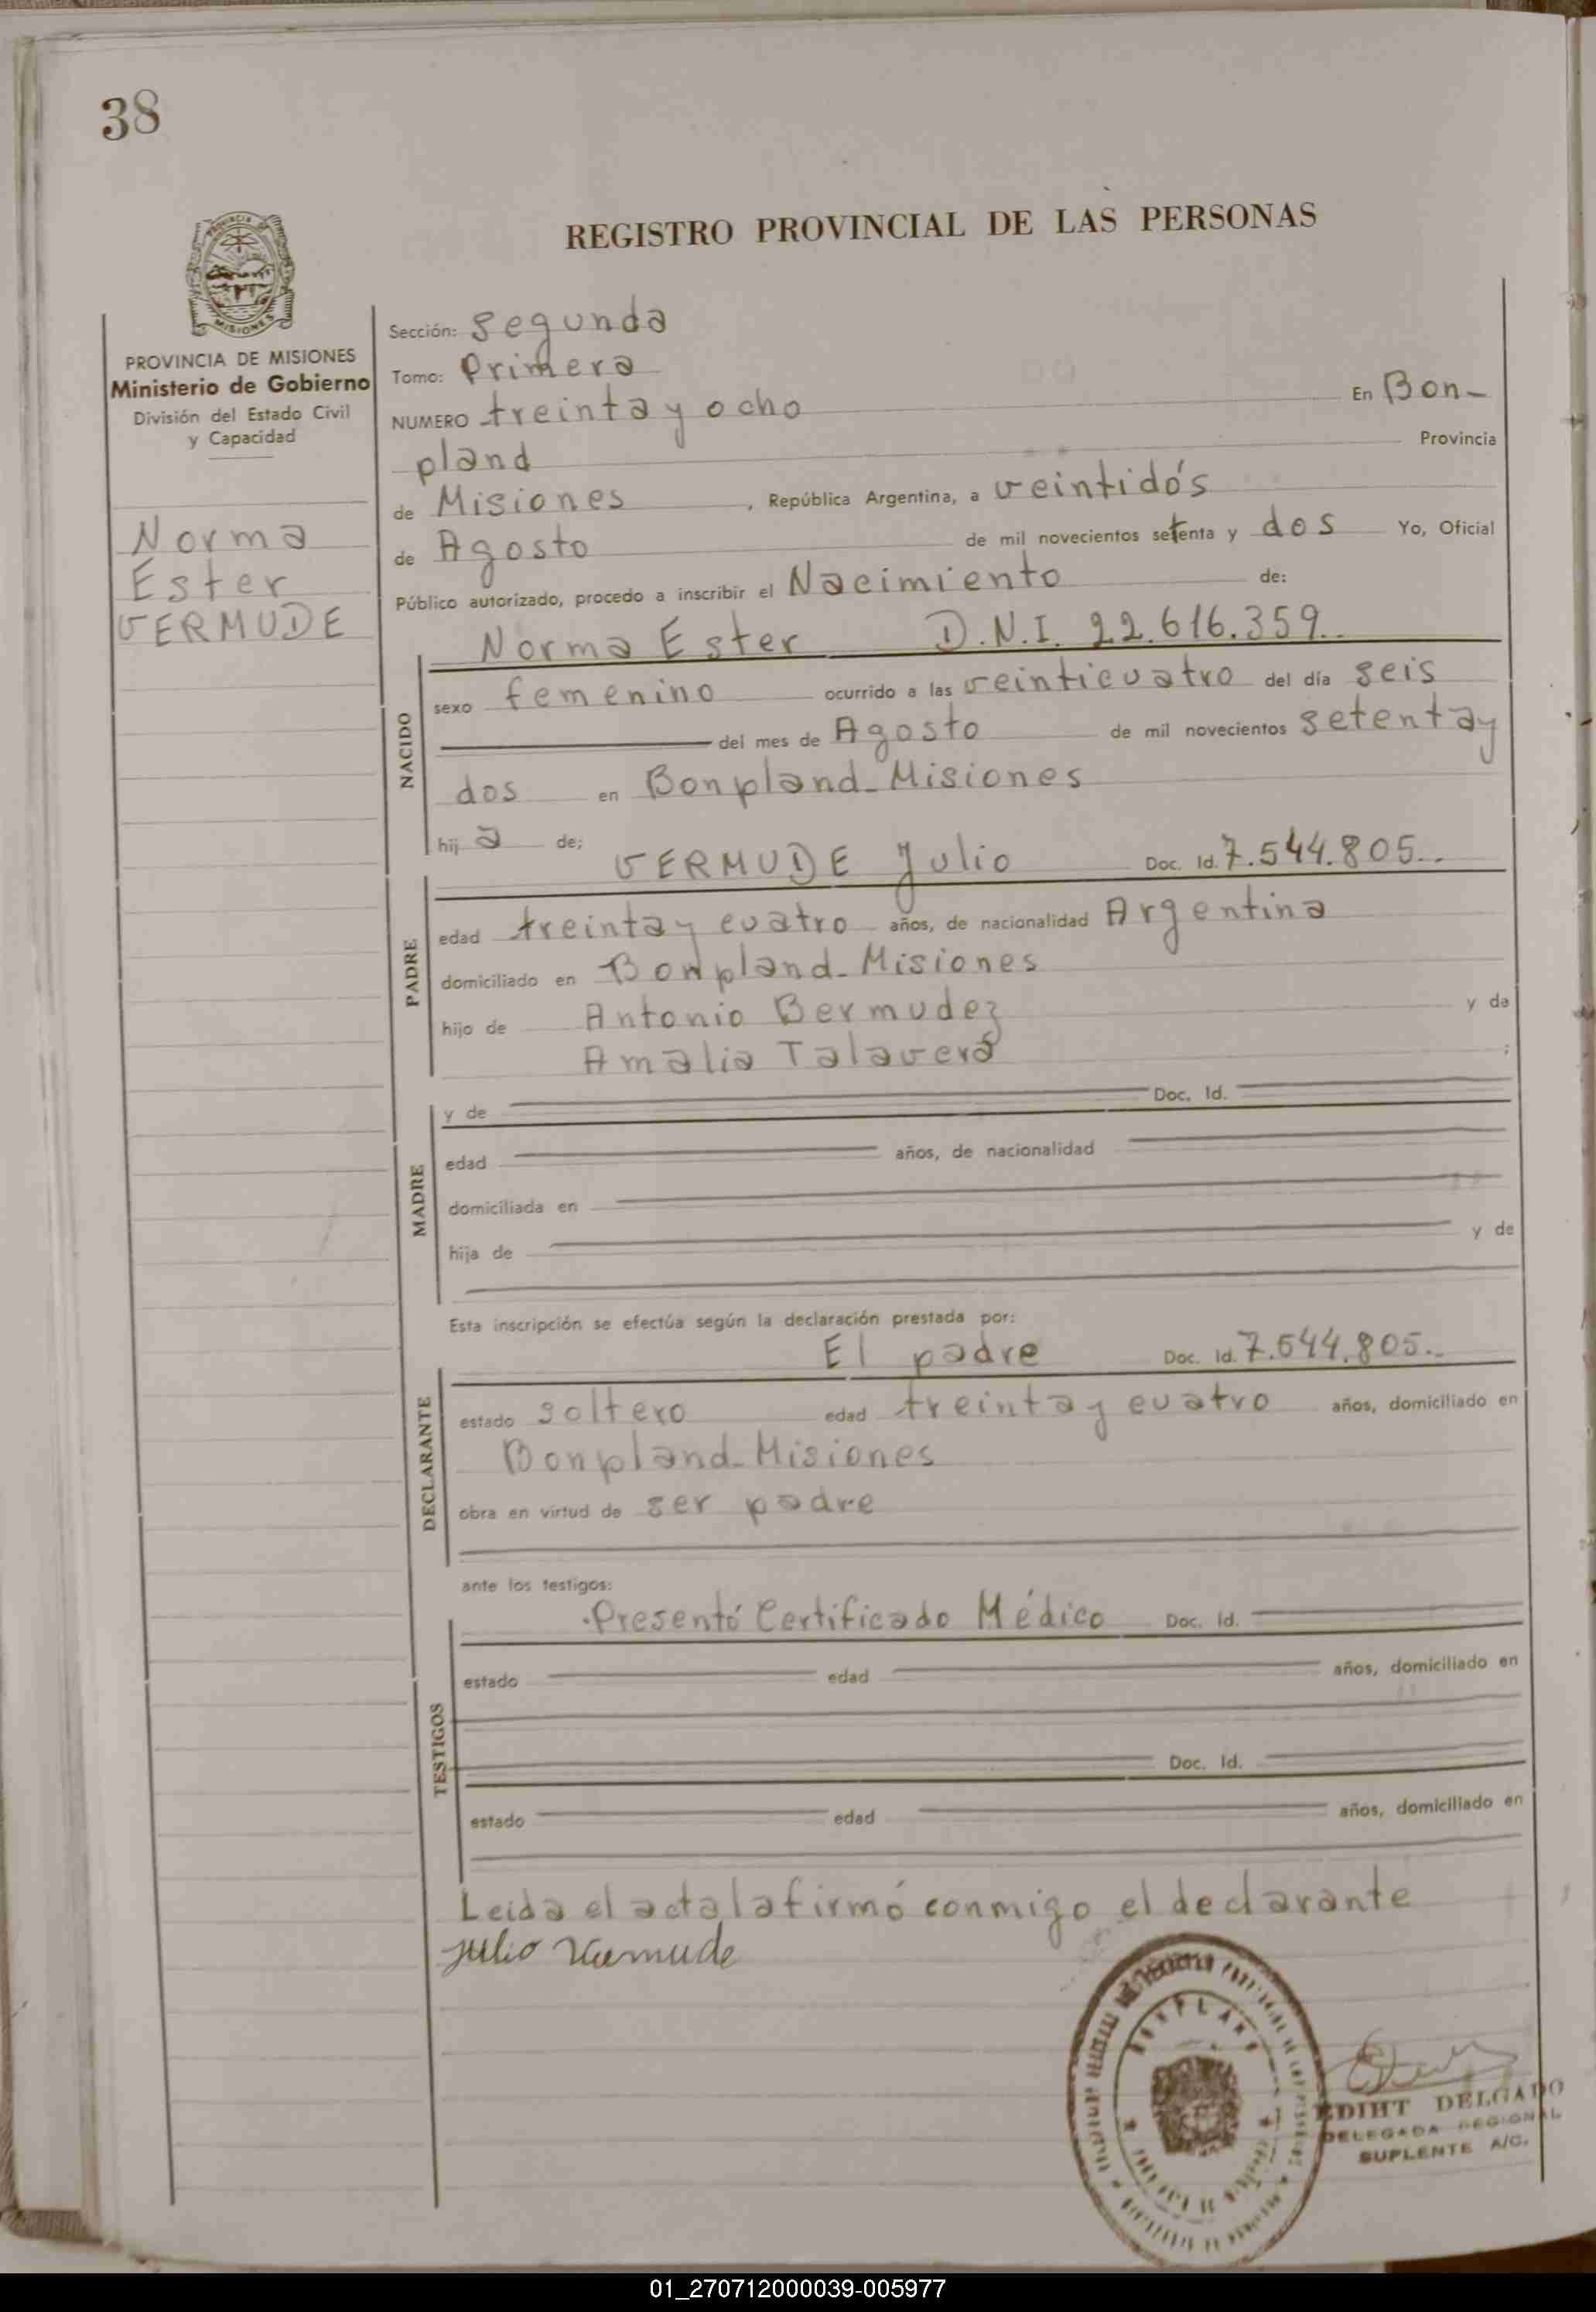 38
REGISTRO PROVINCIAL DE LAS PERSONAS
PROVINCIA DE MISIONES
Ministerio de Gobierno
División del Estado Civil
y Capacidad
Norma
Ester
VERMUDE
Sección: Segunda
Tomo: Primera
NUMERO treinta y ocho En Bon-
pland Provincia
de Misiones, República Argentina, a veintidós
de Agosto de mil novecientos setenta y dos Yo, Oficial
Público autorizado, procedo a inscribir el Nacimiento de:
Norma Ester D.N.I. 22.616.359..
NACIDO
sexo femenino ocurrido a las veinticuatro del día seis
del mes de Agosto de mil novecientos setenta y
dos en Bonpland - Misiones
hija de;
VERMUDE Julio Doc. Id. 7.544.805..
PADRE
edad treinta y cuatro años, de nacionalidad Argentina
domiciliado en Bonpland - Misiones
hijo de Antonio Bermudez y de
Amalia Talavera ;
MADRE
y de Doc. Id.
edad años, de nacionalidad
domiciliada en
hija de y de
Esta inscripción se efectúa según la declaración prestada por:
El padre Doc. Id. 7.544.805..
DECLARANTE
estado soltero edad treinta y cuatro años, domiciliado en
Bonpland - Misiones
obra en virtud de ser padre
ante los testigos:
Presentó Certificado Médico Doc. Id.
TESTIGOS
estado edad años, domiciliado en
Doc. Id.
estado edad años, domiciliado en
Leída el acta la firmó conmigo el declarante
Julio Vermude
BONPLAND
EDIHT DELGADO
DELEGADA REGIONAL
SUPLENTE A/C.
01_270712000039-005977